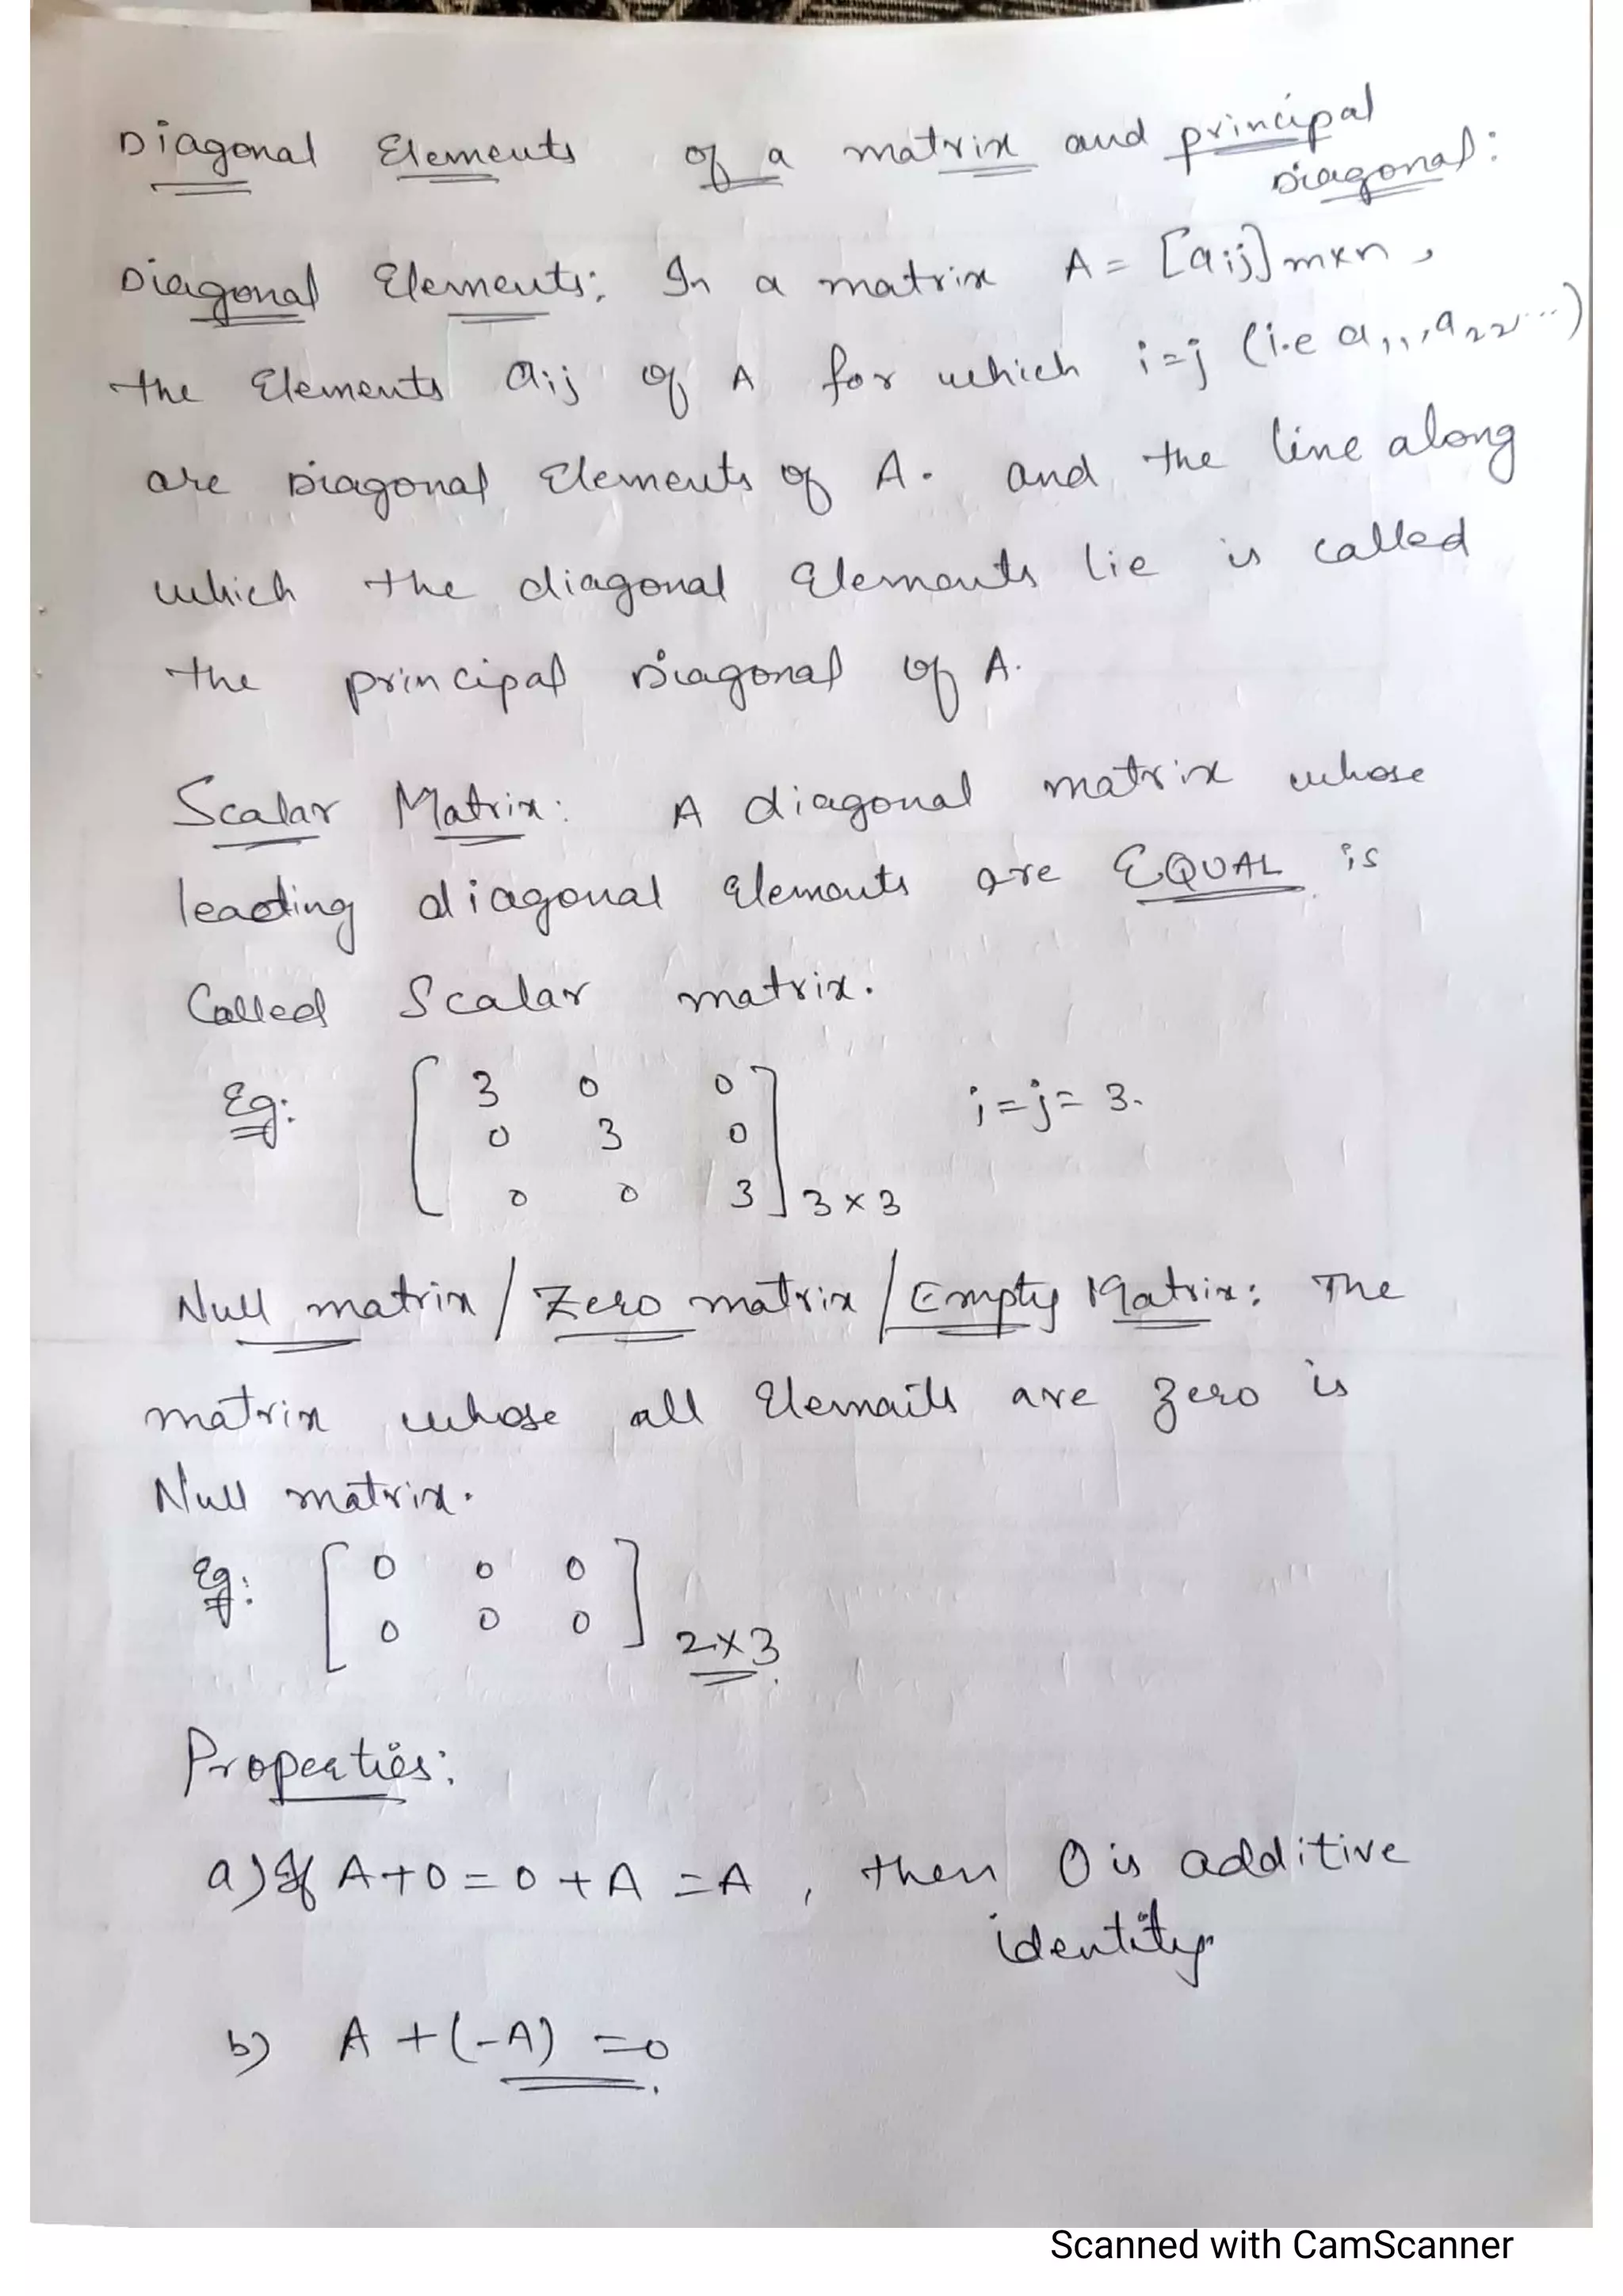 Diagonal Elements of a matrix and principal
Diagonal:
Diagonal Elements: In a matrix A = [aij]m×n,
the Elements aij of A for which i=j (i.e a11, a22, ...)
are Diagonal Elements of A. and the line along
which the diagonal Elements lie is called
the principal Diagonal of A.
Scalar Matrix: A diagonal matrix whose
leading diagonal Elements are EQUAL is
Called Scalar matrix.
Eg: [ 3 0 0 i=j= 3.
0 3 0
0 0 3 ] 3×3
Null matrix / Zero matrix / Empty Matrix: The
matrix whose all Elements are zero is
Null matrix.
Eg: [ 0 0 0
0 0 0 ] 2×3
Properties:
a) If A+0=0+A=A, then O is additive
identity
b) A+(-A) =0.
Scanned with CamScanner